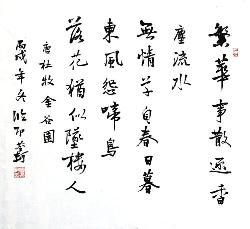 繁華事散逐香
塵流水
無情草自春日暮
東風怨啼鳥
落花猶似墜樓人
唐杜牧金谷園
丙戌年冬